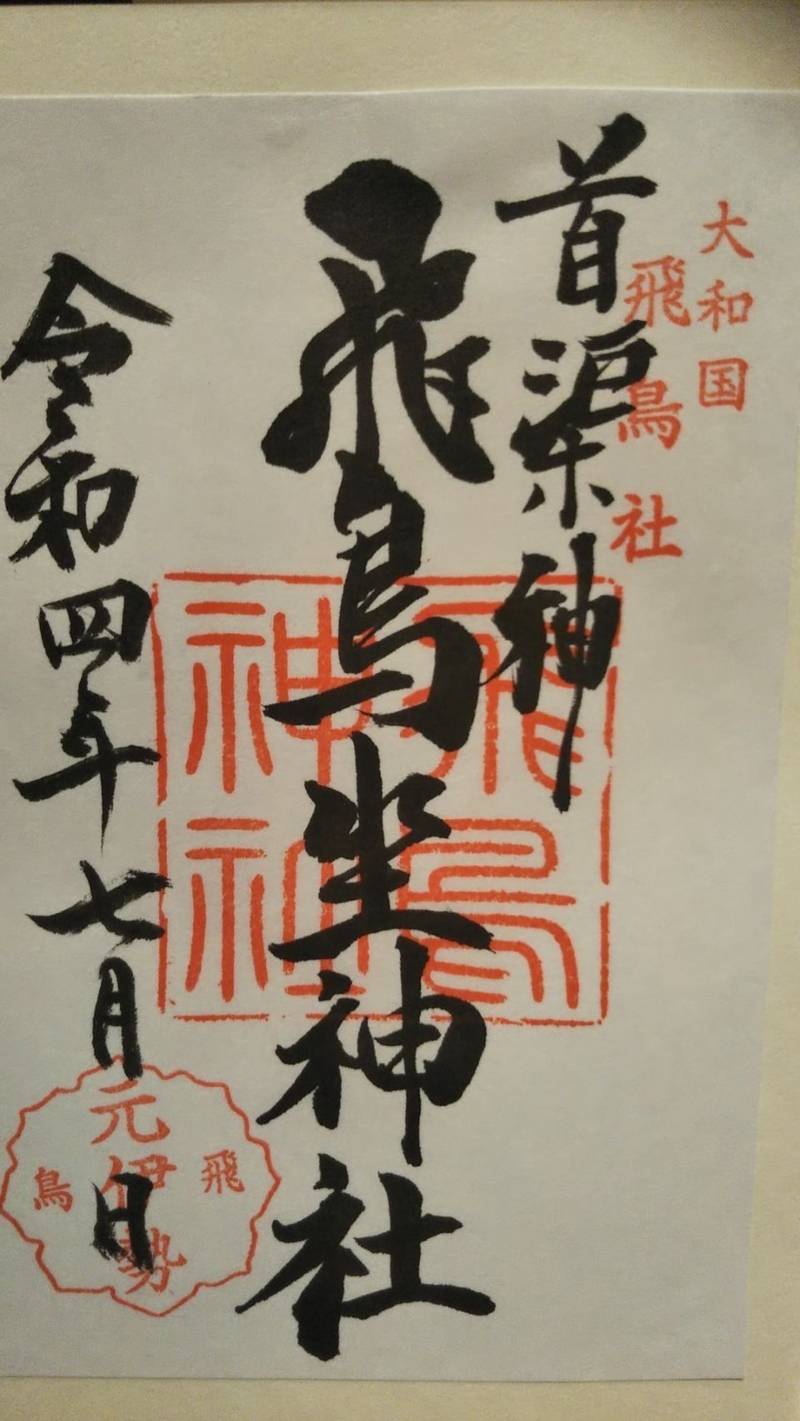 大和国
飛鳥社
首渠神
飛鳥坐神社
飛鳥
神社
令和四年七月 日
飛
元伊勢
鳥